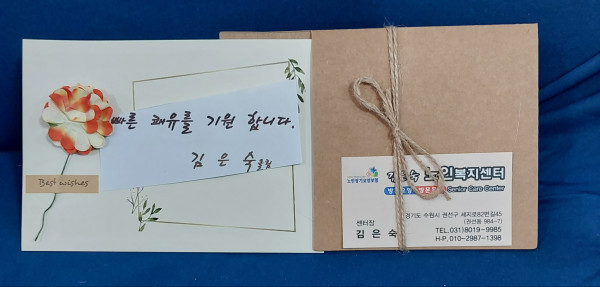 빠른 쾌유를 기원 합니다.
김 은 숙 올림
Best wishes
노인장기요양보험
김은숙 노인복지센터
Senior Care Center
경기도 수원시 권선구 세지로82번길45
(권선동 984-7)
센터장
김 은 숙
TEL.031)8019-9985
H·P. 010-2987-1398